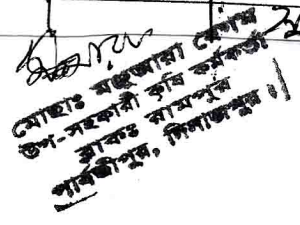 মোছাঃ মঞ্জুআরা বেগম
উপ-সহকারী কৃষি কর্মকর্তা
ব্লকঃ রামপুর
পার্বতীপুর, দিনাজপুর।